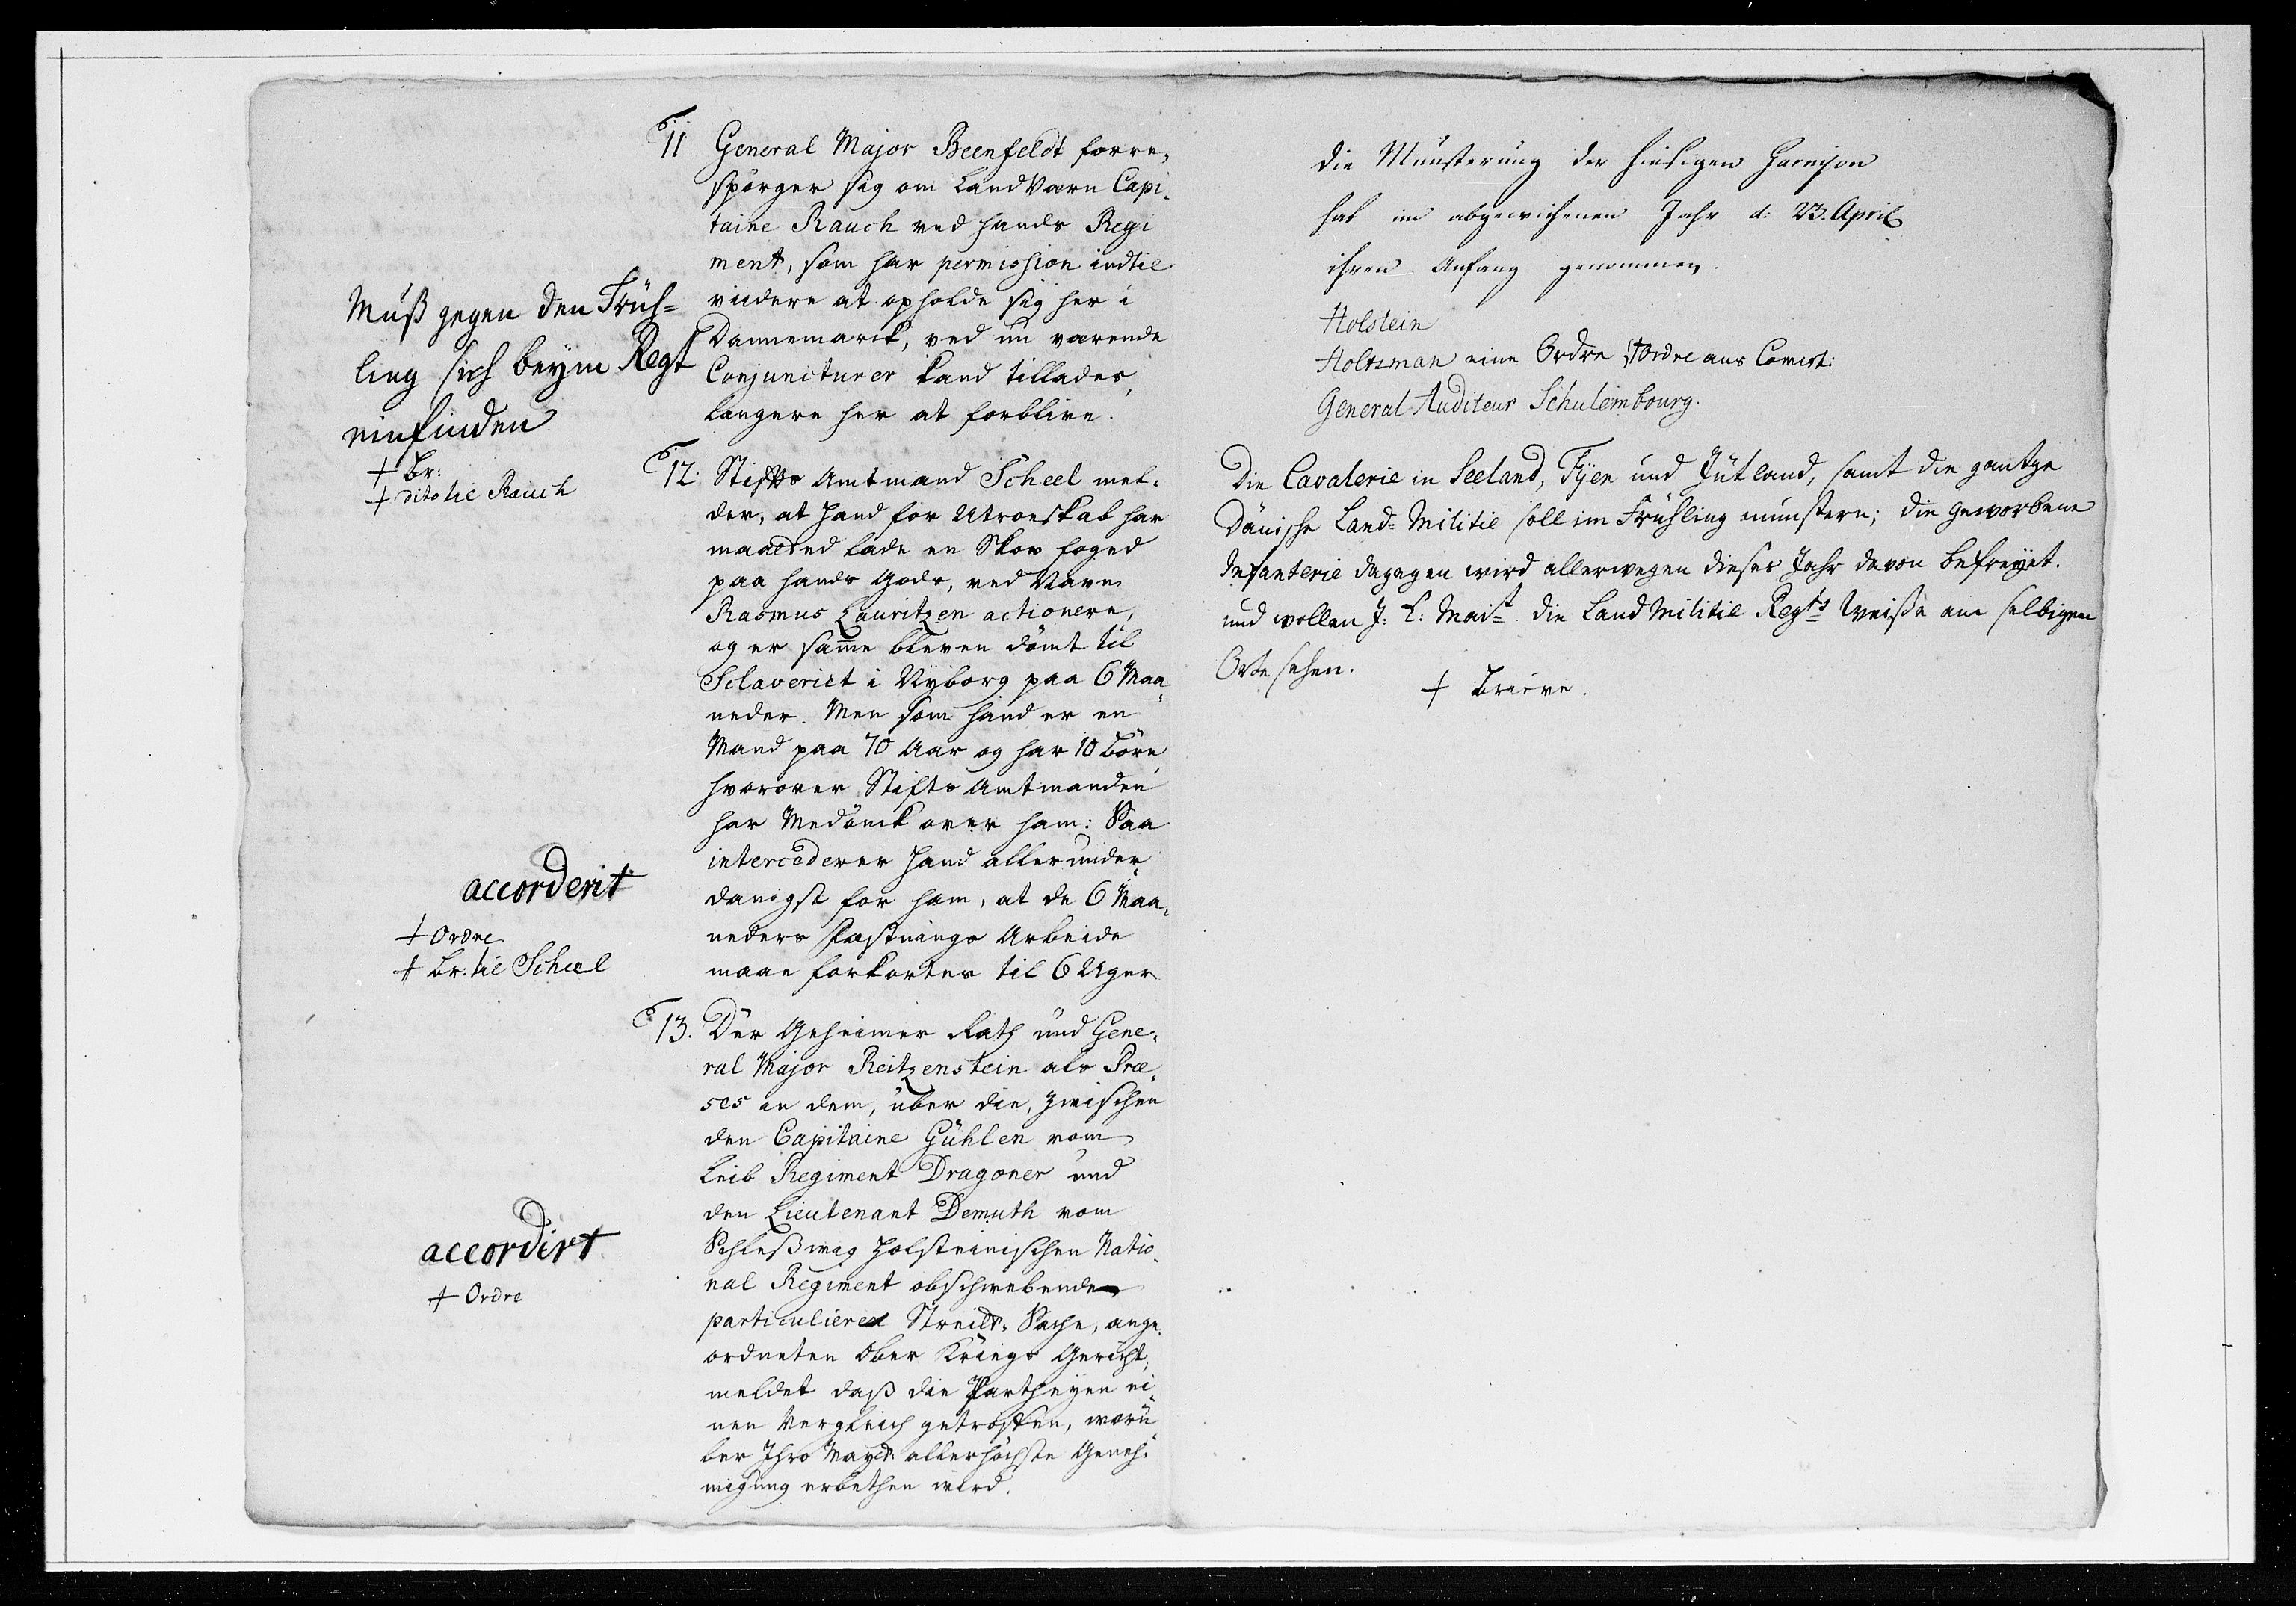 11 General Major Beenfeldt forre,
spörger sig om LandVærn Capi,
taine Rauch ved hands Regi
ment, som har permission indtil
viidere at opholde sig her i
Dannemarck, ved nu værende
Conjuncturer kand tillades,
længere her at forblive.
Muß gegen den Früh=
ling sich beÿm Regt
einfinden
+ Br:
+ dito til Rauch
12. Stifts Amtmand Scheel mel,
der, at Hand for Utroeskab har
maatted lade en Skov foged
paa hands Gods, ved Navn
Rasmus Lauritzen actionere,
og er samme bleven dömt til
Sclaveriet i Nyborg paa 6 Maa,
neder. Men som hand er en
Mand paa 70 Aar og har 10 Börn,
hvorover Stifts Amtmanden
har Medönck over ham: Saa
intercederer Hand allerunder,
danigst for ham, at de 6 Maa,
neders Fæstnings Arbeide
maae forkortes til 6 Uger
accorderit
+ Ordre
+ Br: til Scheel
13. Der Geheimer Rath und Gene,
ral Major Reitzenstein als Præ,
ses in dem, über die, zwischen
den Capitaine Gühlen vom
Leib Regiment Dragoner und
den Lieutenant Demuth vom
Schleßwig Holsteinischen Natio,
nal Regiment obschwebende
particulieres Streits Sache, ange,
ordneten Ober Kriegs Gericht,
meldet daß die Partheÿen ei,
nen Vergleich getroffen, worü
ber Ihro Mayt: allerhöchste Geneh,
migung erbethen wird.
accordirt
+ Ordre
Die Münsterung der hiesigen Garnison
hat im abgewichenen Jahr d: 23. April
ihren Anfang genommen.
Holstein
Holtzman eine Ordre + Ordre aus
General Auditeur Schulembourg.
Die Cavalerie in Seeland, Fÿen und Jütland, samt die gantze
Dänische Land=Militie soll im Frühling münstern; die geworbene
Infanterie dagegen wird allerwegen dieses Jahr davon befreÿet.
und wollen I: K: Mait die Land Militie Regts Weise am selbigen
Orte sehen.
+ Breve.